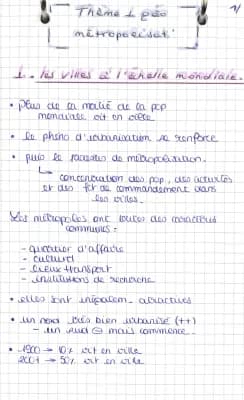 1/
Thème 1 géo
métropolisat°
1. Les villes à l'échelle mondiale.
• Plus de la moitié de la pop
mondiale vit en ville
• le phéno d'urbanisation se renforce
• puis le processus de métropolisation.
↳ concentration des pop, des activités
et des fct de commandement dans
les villes.
Les métropoles ont toutes des caractères
communes :
- quartier d'affaire
- culturel
- lieux transport
- institutions de recherche
• elles sont inégalem. attractives
• un nord très bien urbanisé (++)
- un sud ⊖ mais commence.
• 1900 → 10% vit en ville
2007 → 50% vit en ville